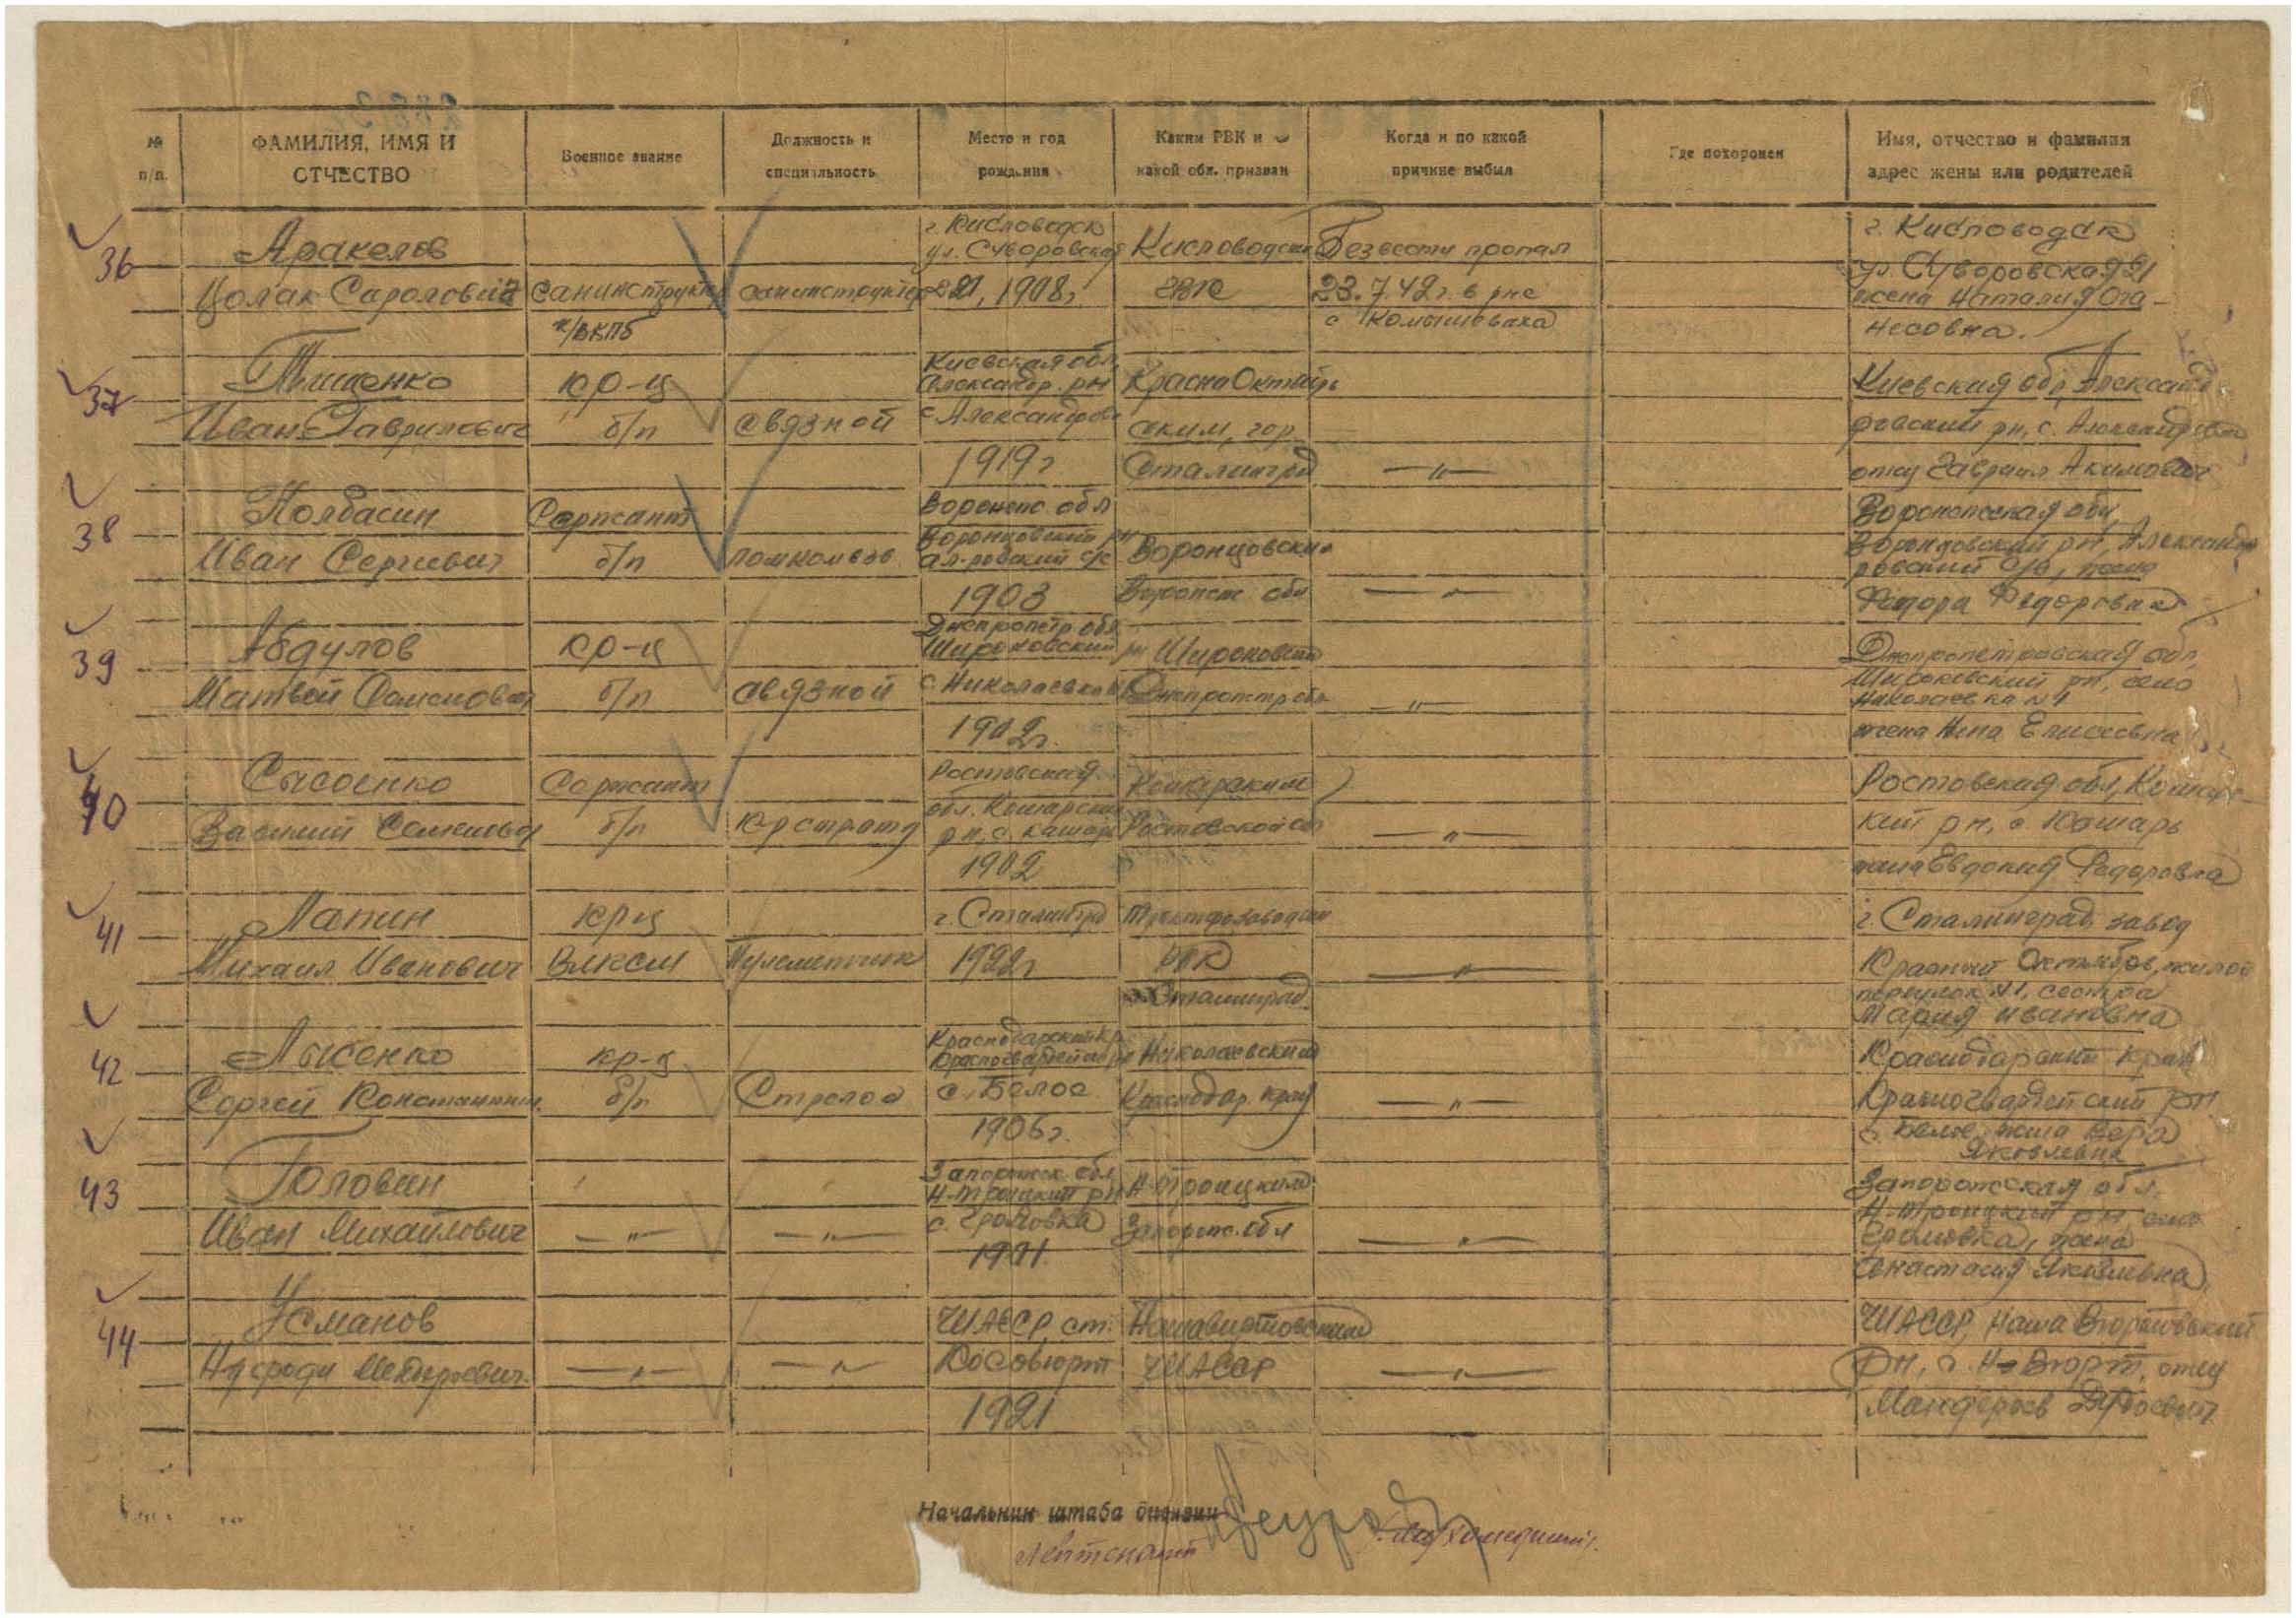 № п/п.
ФАМИЛИЯ, ИМЯ И ОТЧЕСТВО
Военное звание
Должность и специальность
Место и год рождения
Каким РВК и какой обл. призван
Когда и по какой причине выбыл
Где похоронен
Имя, отчество и фамилия адрес жены или родителей
36
Аракелов
Цолак
Санинструктор
к/ВКПб
санинструктор
г. Кисловодск
ул. Суворовская
21, 1908г.
Кисловодским
ГВК
Без вести пропал
23.7.42г. в р-не
с Комышеваха
г. Кисловодск
ул. Суворовская 21
жена Наталия Ога-
несовна.
37
Тищенко
Иван Гаврилович
кр-ц
б/п
связной
Киевская обл,
Александр. рн
с Александров
1919г
КраснОктябрь
ским, гор
Сталинград
—"—
Киевская обл, Александ
ровский рн, с. Александровка
отец Гаврил Акимович
38
Колбасин
Иван Сергеевич
Сержант
б/п
помкомвзв
Воронеж обл
Воронцовский рн
Ал-ровский с/с
1903
Воронцовским
Воронеж обл
—"—
Воронежская обл,
Воронцовский рн, Александ
ровский с/с, жена
Федоровна
39
Абдулов
Матвей Семенович
кр-ц
б/п
связной
Днепропетр обл
Широковский рн
с Николаевка
1902г.
Широковским
Днепропетр обл
—"—
Днепропетровская обл,
Широковский рн, село
Николаевка №1
жена Нина Елисеевна
40
Сысоенко
Василий Семенович
Сержант
б/п
Ростовская
обл. Кошарский
рн, с. Кашары
1902
Кошарским
Ростовской обл
—"—
Ростовская обл, Кошарс-
кий рн, с Кошары
жена Евдокия Федоровна
41
Лапин
Михаил Иванович
кр-ц
ВЛКСМ
Пулеметчик
г. Сталинград
1922г
РВК
г. Сталинград
—"—
г. Сталинград, завод
Красный Октябрь, жилой
переулок №1, сестра
Мария Ивановна
42
Лысенко
Сергей Константин.
кр-ц
б/п
Стрелок
Краснодарский кр
Красногвардейский рн
с. Белое
1906г.
Николаевским
Краснодар. край
—"—
Краснодарский край
Красногвардейский рн
с. Белое, жена Вера
Яковлевна
43
Головин
Иван Михайлович
—"—
—"—
Запорожск. обл
Н-Троицкий рн
с. Громовка
1901
Н-Троицким
Запорож. обл
—"—
Запорожская обл.
Н-Троицкий рн, село
Громовка, жена
Анастасия Яковлевна.
44
Усманов
—"—
—"—
ЧИАССР, ст.
1921
ЧИАССР
—"—
ЧИАССР,
рн, с. отец
Начальник штаба дивизии
Лейтенант